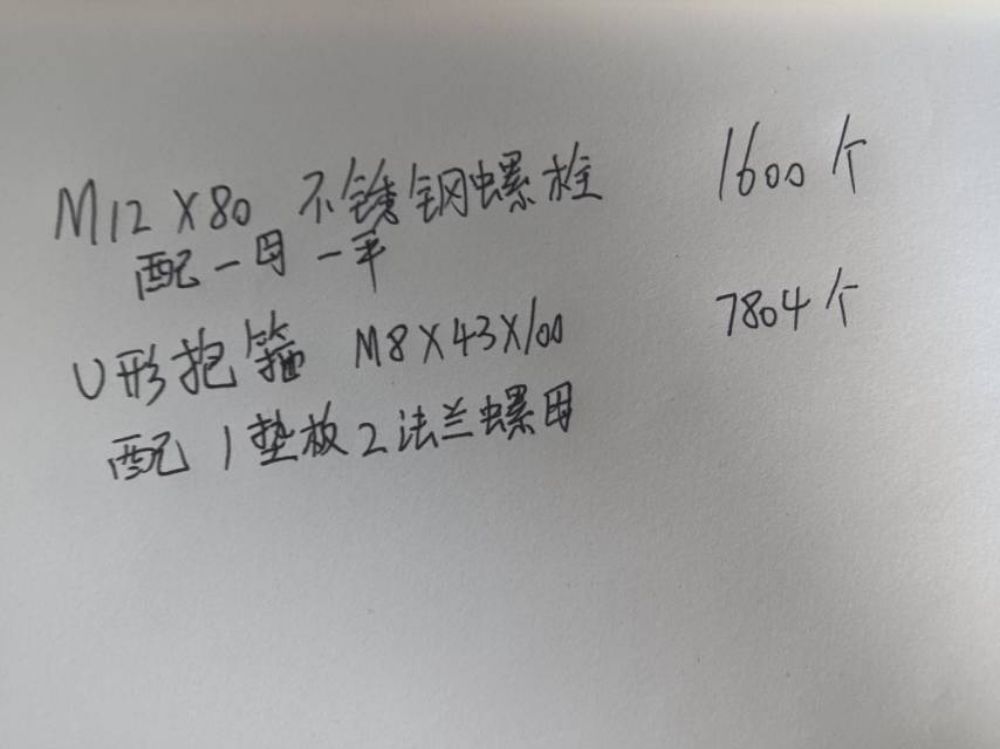 M12X80 不锈钢螺栓 1600个
配一母一平
U形抱箍 M8X43X100 7804个
配1垫板2法兰螺母